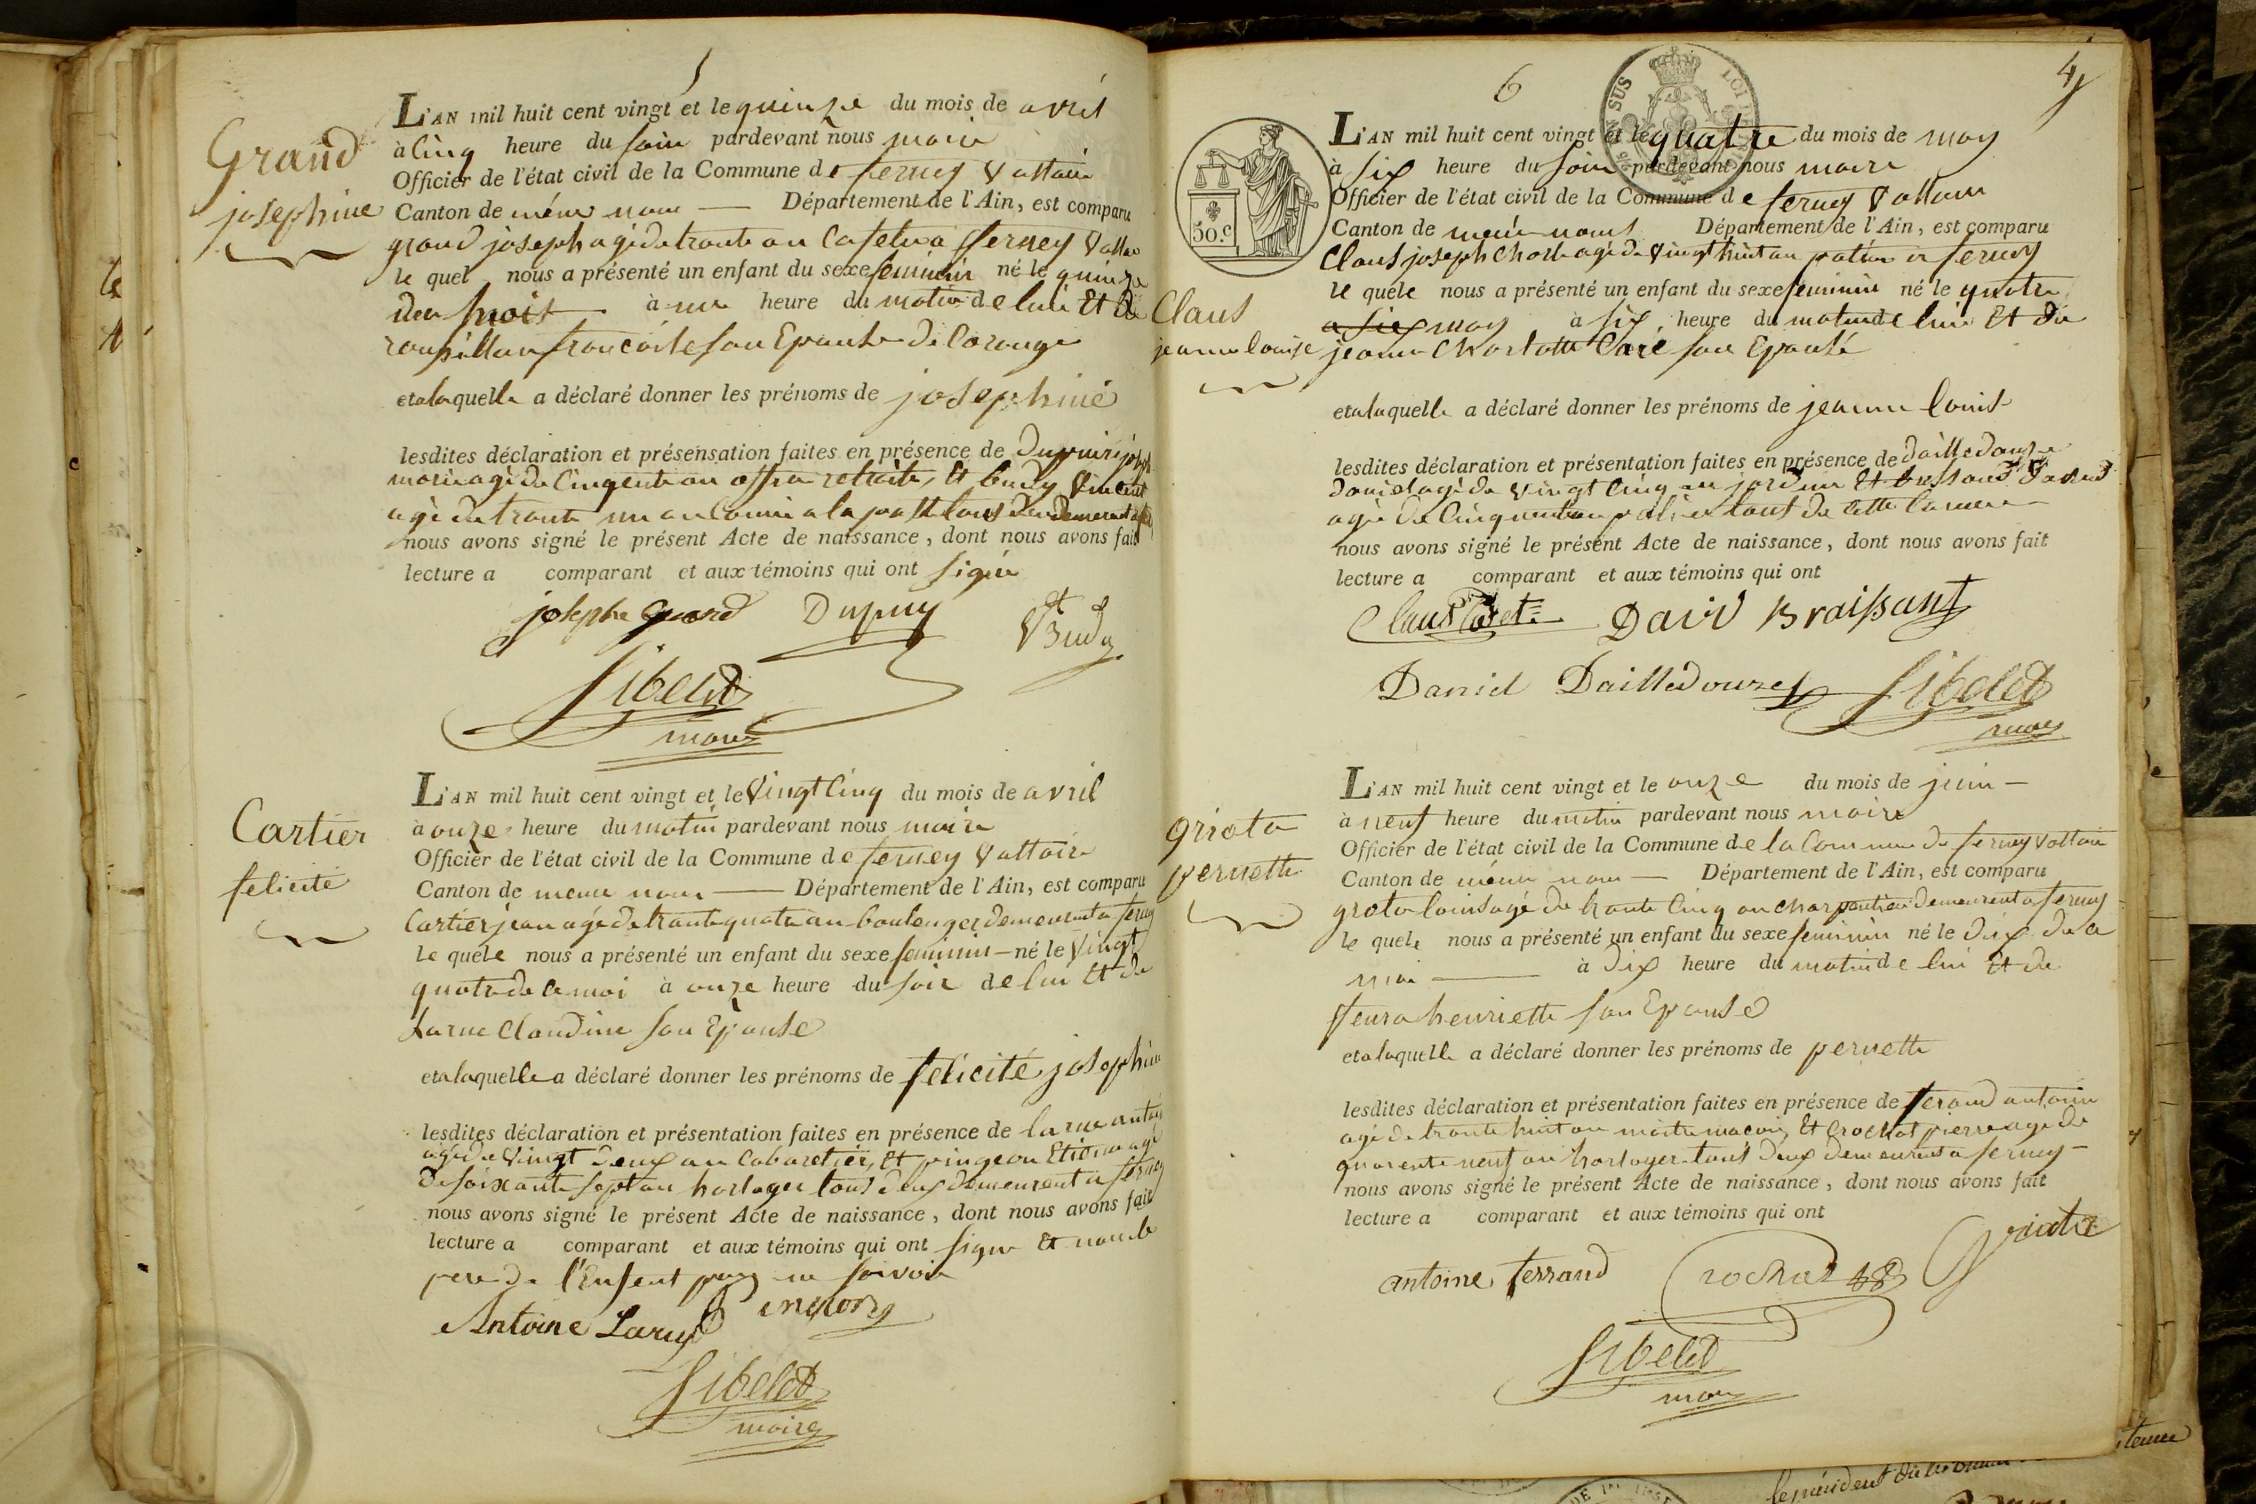 5
Grand
josephine
L'AN mil huit cent vingt et le quinze du mois de avril
à cinq heure du soir pardevant nous maire
Officier de l'état civil de la Commune de ferney Voltaire
Canton de même nom — Département de l'Ain, est comparu
grand joseph agé de trante an Cafetie a fferney Voltai
le quel nous a présenté un enfant du sexe feminin né le quinze
du mois à une heure du matin de lui Et de
francoise son Epouse de Carouge
et a laquelle a déclaré donner les prénoms de josephine
lesdites déclaration et présensation faites en présence de Dupuis joseph
marie agé de Cinqente an retraite, Et budy Vincent
agé de trante un an Comis a la poste tous deux demeurent a
nous avons signé le présent Acte de naissance, dont nous avons fait
lecture a comparant et aux témoins qui ont signé
josephe grand Dupuy Vt Budy
Sibelet
maire
Cartier
felicité
L'AN mil huit cent vingt et le Vingt Cinq du mois de avril
à onze heure du matin pardevant nous maire
Officier de l'état civil de la Commune de ferney Voltaire
Canton de meme nom — Département de l'Ain, est comparu
Cartier jean agé de trante quatre an boulenger demeurent a ferney
le quele nous a présenté un enfant du sexe feminin — né le Vingt
quatre de ce moi à onze heure du soir de lui Et de
Larue Claudine son Epouse
et a laquelle a déclaré donner les prénoms de felicité josephine
lesdites déclaration et présentation faites en présence de larue antoi
agé de Vingt deux an Cabaretier, Et pingeon Etienne agé
De soixante sept an horloger tous deux demeurent a ferney
nous avons signé le présent Acte de naissance, dont nous avons fait
lecture a comparant et aux témoins qui ont signe Et non le
pere de l'Enfent pour ne savoir
Antoine Larue
Sibelet
maire
6
4
50.c
SUS
LOI
L'AN mil huit cent vingt et le quatre du mois de may
à six heure du soir pardevant nous maire
Officier de l'état civil de la Commune de ferney Voltaire
Canton de meme nom Département de l'Ain, est comparu
Claus joseph Charle agé de Vingt huit an potier a ferney
le quele nous a présenté un enfant du sexe feminin né le quatre
Claus
jeanne louise
a six may à six heure du matin de lui Et de
jeanne Charlotte Caré son Epouse
et a laquelle a déclaré donner les prénoms de jeanne louise
lesdites déclaration et présentation faites en présence de dailledouze
daniel agé de Vingt Cinq an Et David
agé de Cinquente an potier tous de cette Comune
nous avons signé le présent Acte de naissance, dont nous avons fait
lecture a comparant et aux témoins qui ont
Claus David Braissant
Daniel Dailledouzes Sibelet
maire
griota
pernette
L'AN mil huit cent vingt et le onze du mois de juin —
à neuf heure du matin pardevant nous maire
Officier de l'état civil de la Commune de la Commune de ferney Voltaire
Canton de même nom — Département de l'Ain, est comparu
grota louis agé de trante Cinq an charpentier demeurent a ferney
le quele nous a présenté un enfant du sexe feminin né le dix de ce
moi — à dix heure du matin de lui Et de
henriette son Epouse
et a laquelle a déclaré donner les prénoms de pernette
lesdites déclaration et présentation faites en présence de ferand antoine
agé de trante huit an maitre macon, Et Crochat pierre agé de
quarente neuf an horloger tous deux demeurent a ferney —
nous avons signé le présent Acte de naissance, dont nous avons fait
lecture a comparant et aux témoins qui ont
antoine ferrand Crochat
Sibelet
maire